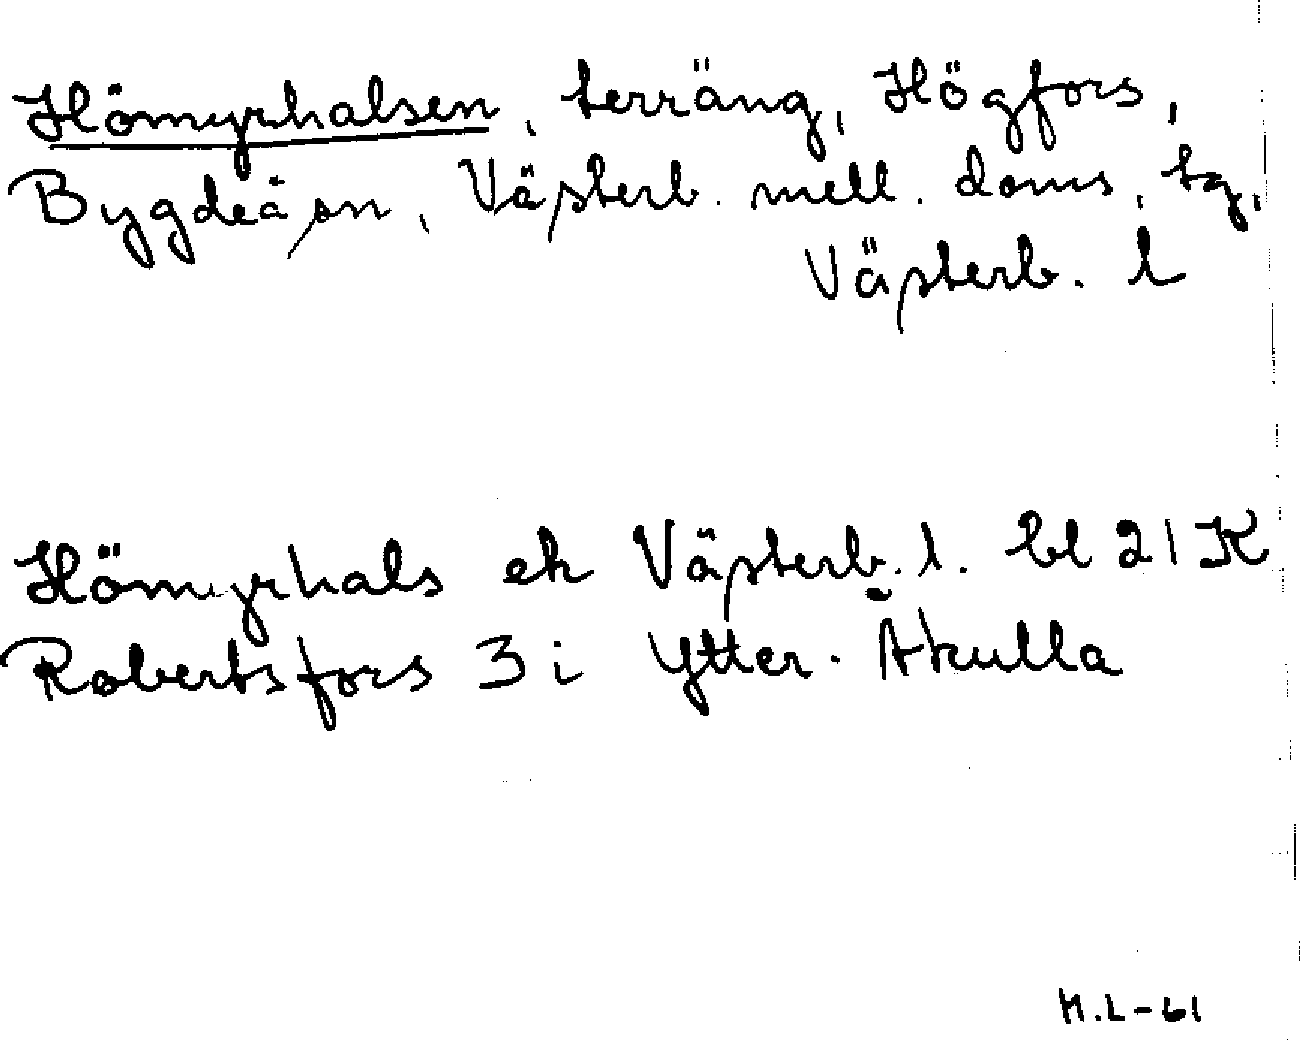 Hömyrhalsen, terräng, Högfors,
Bygdeå sn, Västerb. mell. doms. tg,
Västerb. l
Hömyrhals ek Västerb. l. bl 21 K
Robertsfors 3 i Ytter-Åkulla
M.L-61